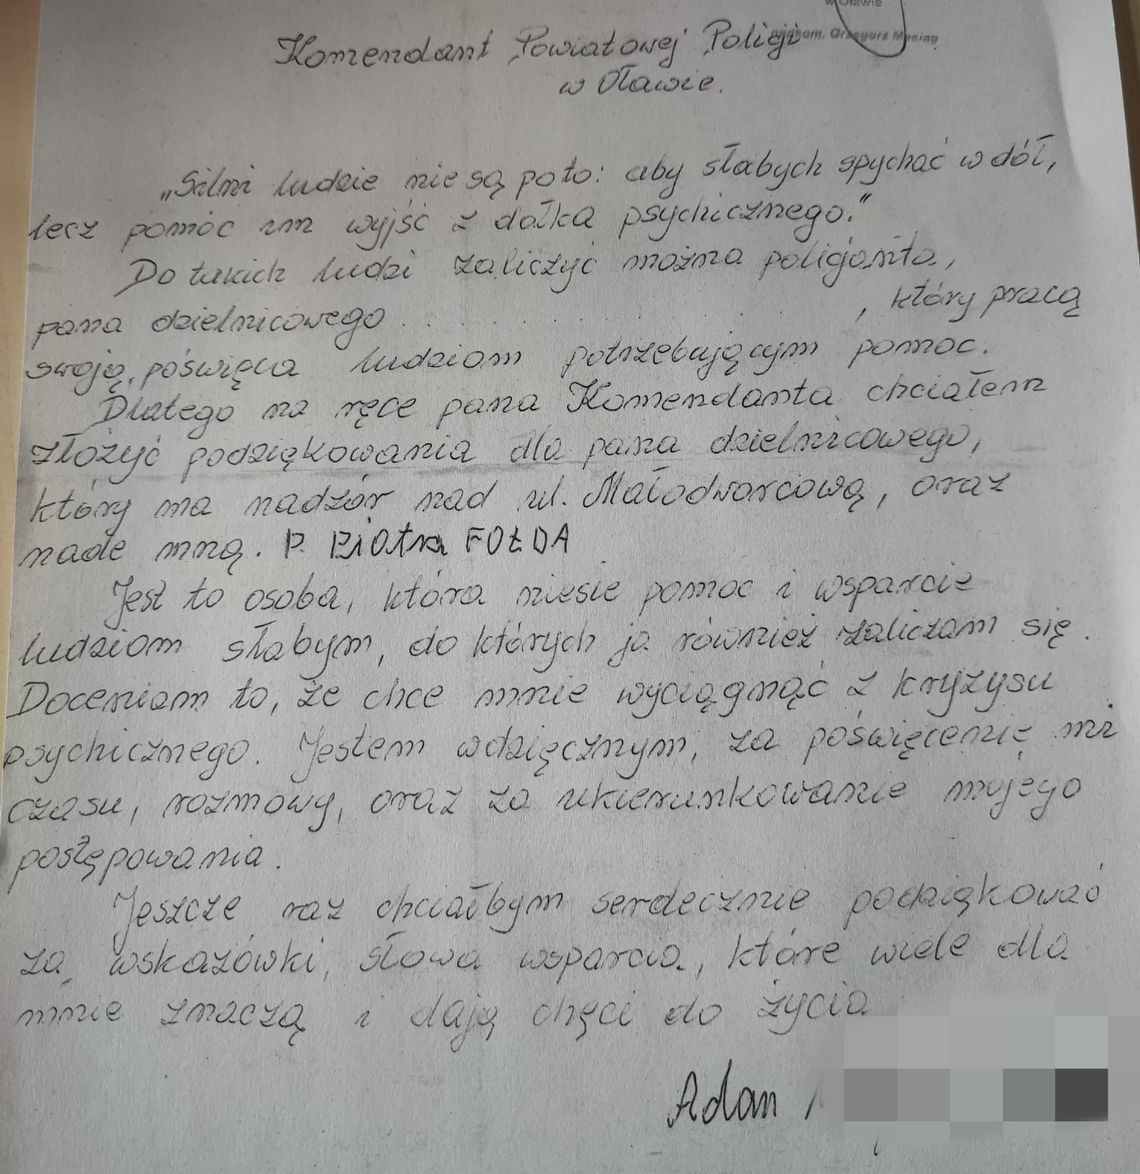 w Oławie
nadkom. Grzegorz Mysiag
Komendant Powiatowej Policji
w Oławie.
„Silni ludzie nie są po to: aby słabych spychać w dół,
lecz pomóc im wyjść z dołka psychicznego."
Do takich ludzi zaliczyć można policjanta,
pana dzielnicowego . . . . . . . , który pracą
swoją, poświęca ludziom potrzebującym pomoc.
Dlatego na ręce pana Komendanta chciałem
złożyć podziękowania dla pana dzielnicowego,
który ma nadzór nad ul. Małodworcową, oraz
nade mną. P. Piotra FOŁDA
Jest to osoba, która niesie pomoc i wsparcie
ludziom słabym, do których ja również zaliczam się.
Doceniam to, że chce mnie wyciągnąć z kryzysu
psychicznego. Jestem wdzięcznym, za poświęcenię mi
czasu, rozmowy, oraz za ukierunkowanie mojego
postępowania.
Jeszcze raz chciałbym serdecznie podziękować
za wskazówki, słowa wsparcia, które wiele dla
mnie znaczą i dają chęci do życia
Adam